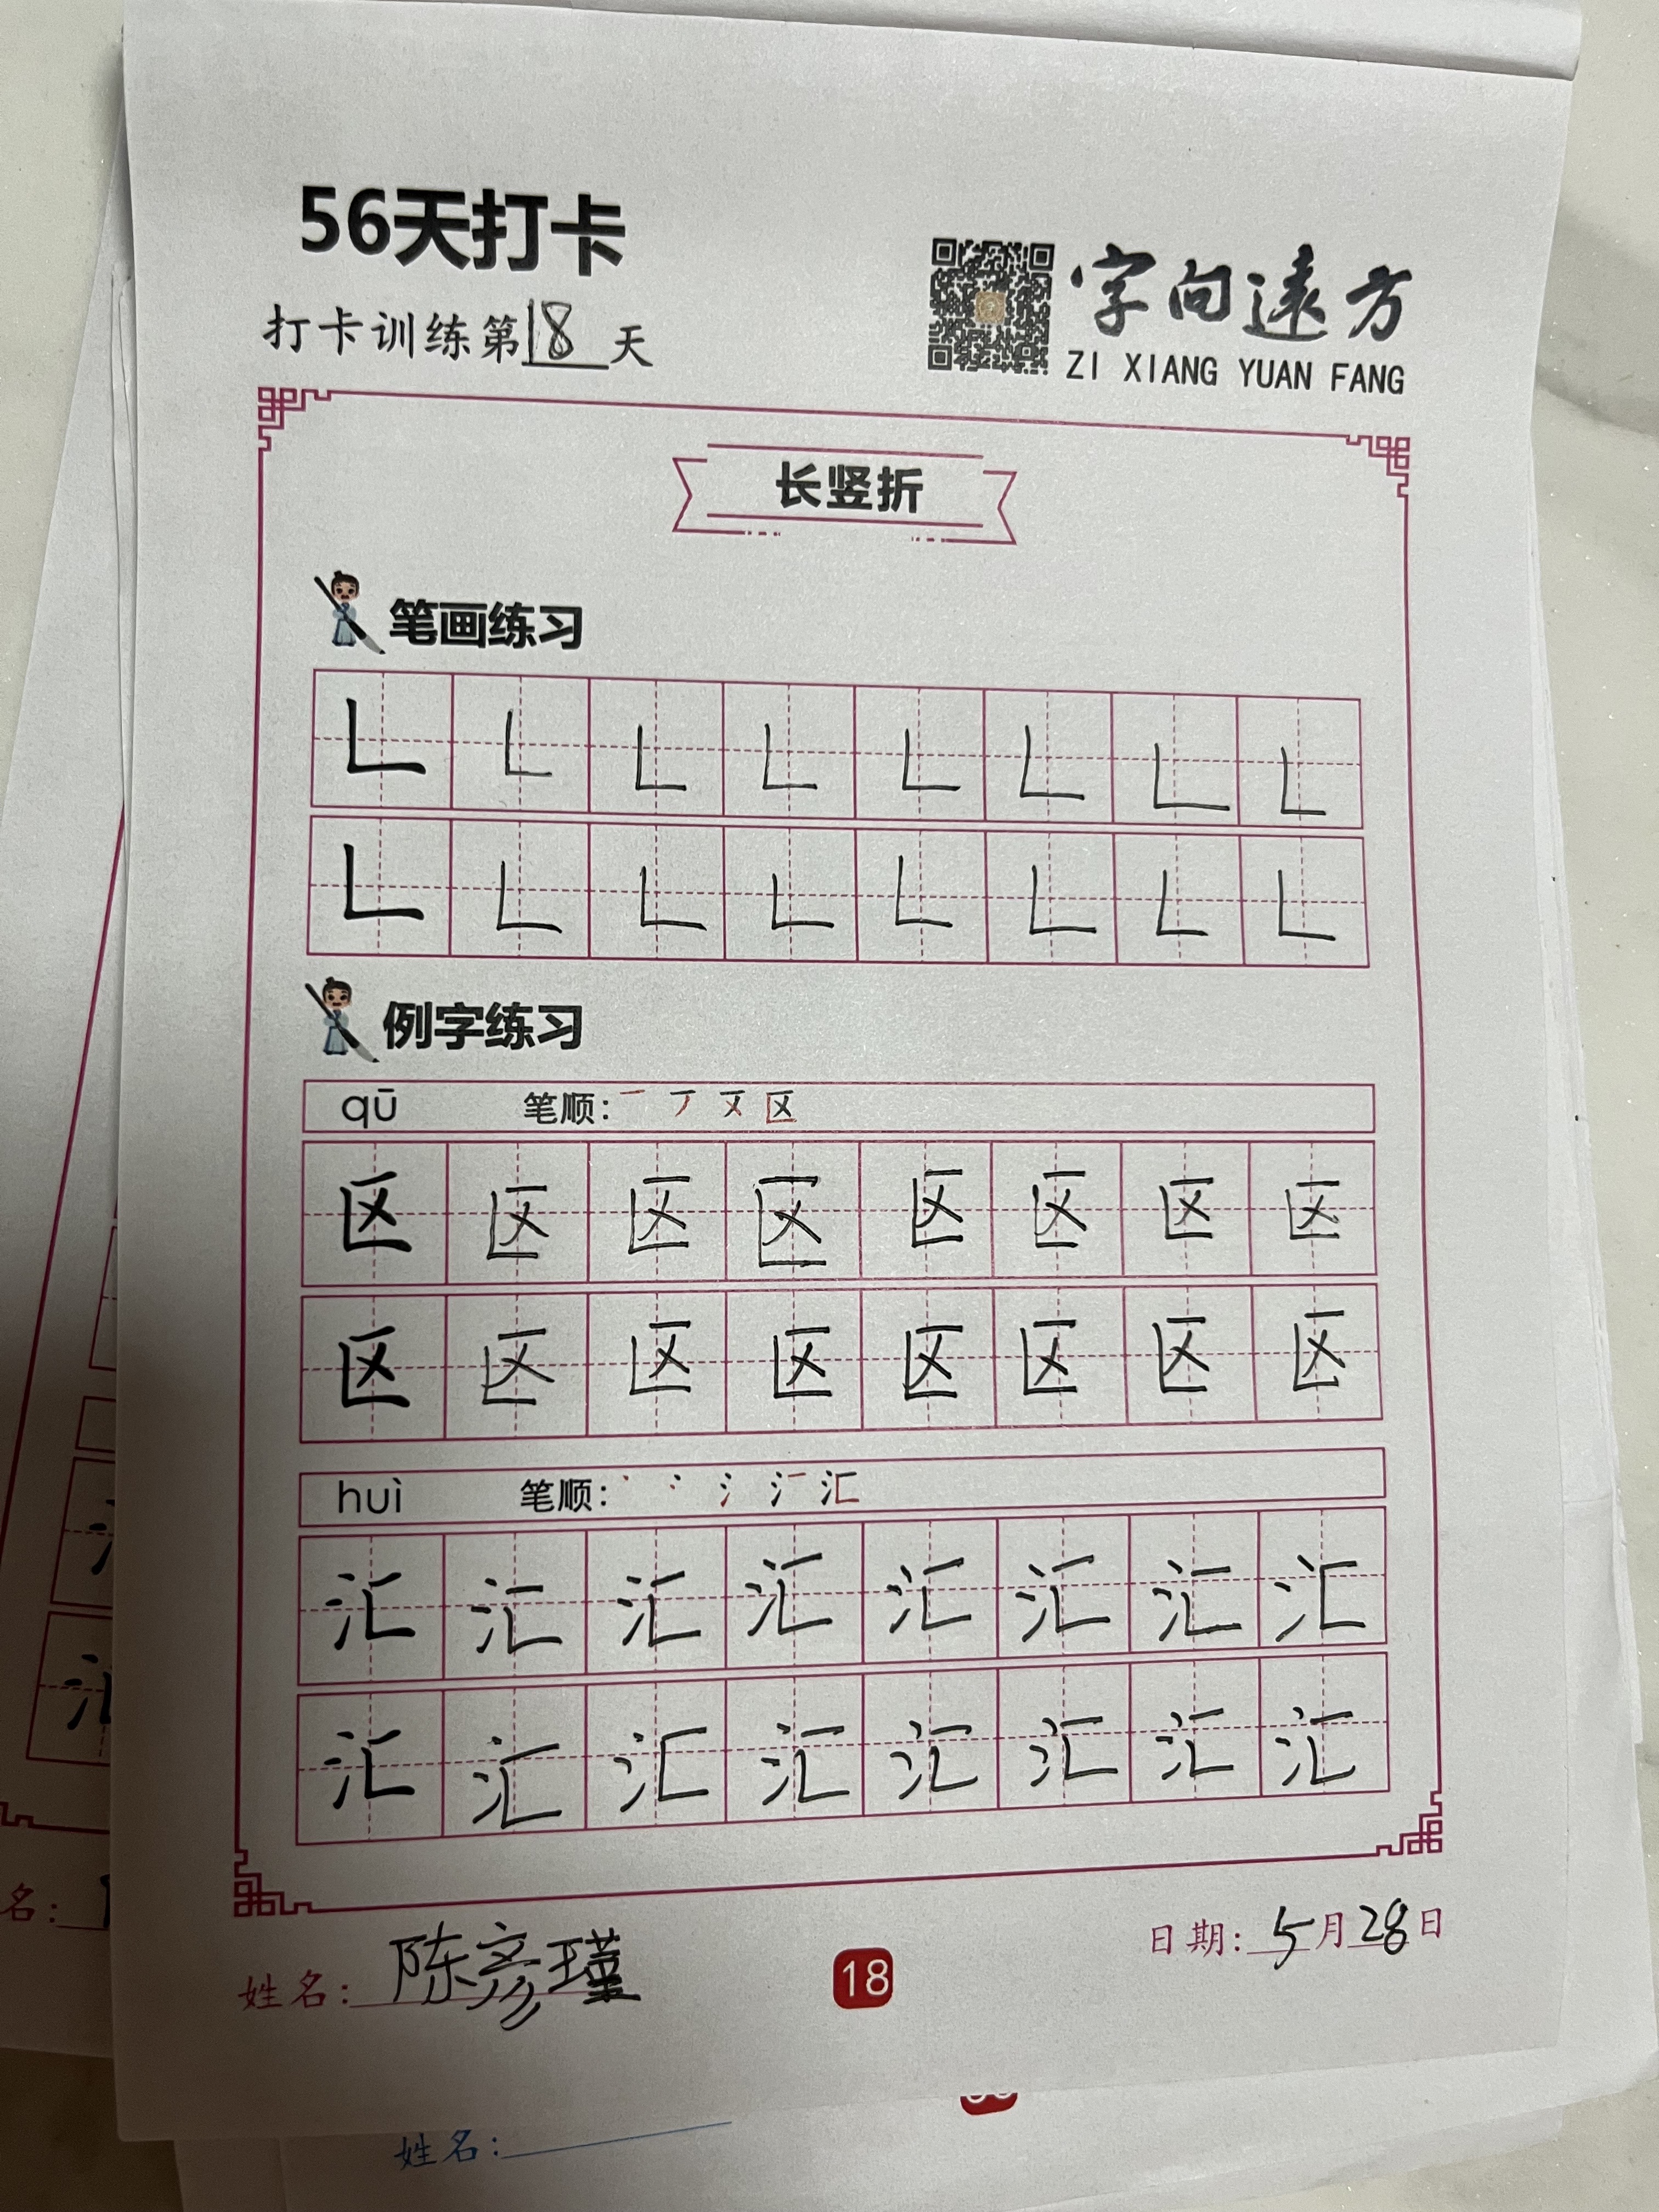 56天打卡
打卡训练第18天
字向遠方
ZI XIANG YUAN FANG
长竖折
笔画练习
例字练习
qū 笔顺: 区
区 区 区 区 区 区 区 区
区 区 区 区 区 区 区 区
huì 笔顺: 汇
汇 汇 汇 汇 汇 汇 汇 汇
汇 汇 汇 汇 汇 汇 汇 汇
姓名: 陈彦瑾
18
日期: 5月28日
名:
姓名: